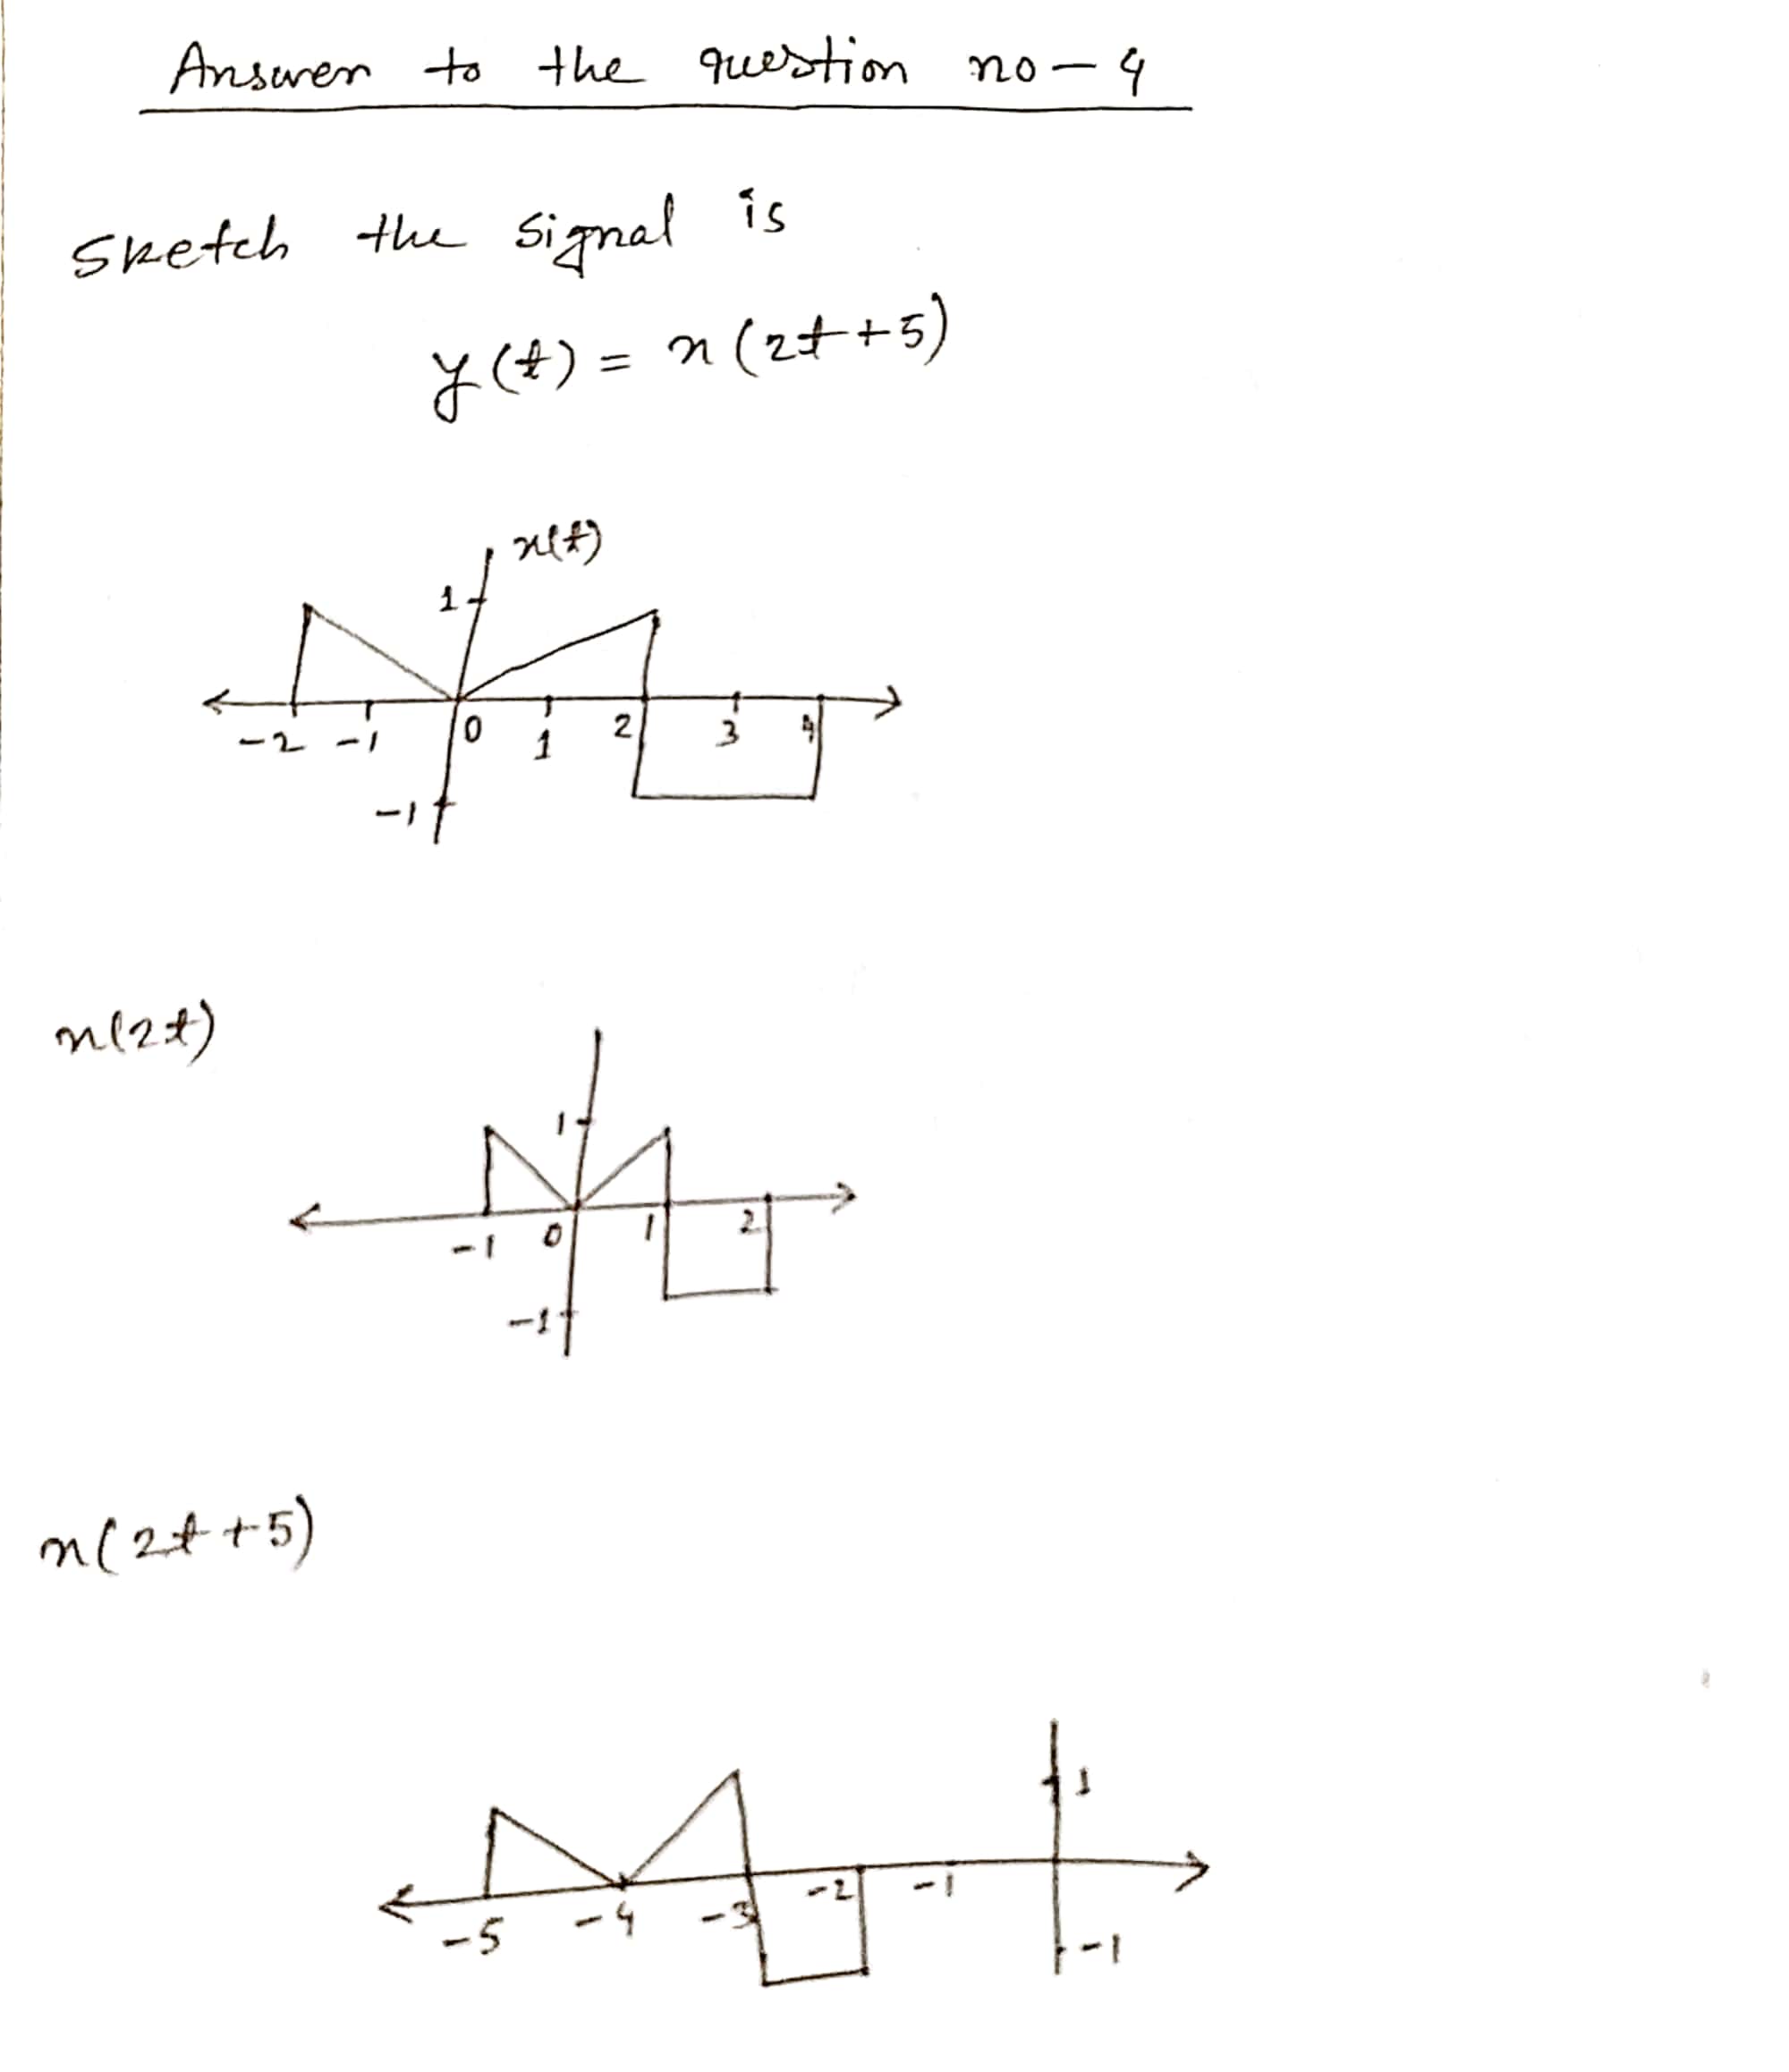 Answer to the question no-4
Sketch the signal is
y(t) = x(2t+5)
x(t)
1
-2 -1 0 1 2 3 4
-1
x(2t)
1
-1 0 1 2
-1
x(2t+5)
1
-5 -4 -3 -2 -1
-1